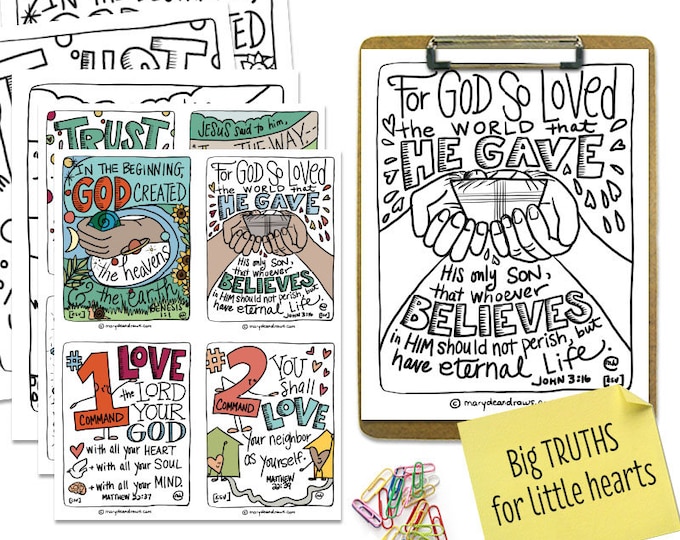 TRUST
JESUS said to him,
THE WAY
IN THE BEGINNING,
GOD CREATED
the heavens
& the earth.
GENESIS
1:1
© marydeandraws.com
For GOD So LOVED
the WORLD that
HE GAVE
HIS only SON,
that whoever
BELIEVES
in HIM should not perish, but
have eternal Life.
JOHN 3:16
© marydeandraws.com
#1
COMMAND
LOVE
the LORD
YOUR
GOD
with all your HEART
+ with all your SOUL
+ with all your MIND.
[ESV] MATTHEW 22:37
© marydeandraws.com
#2
COMMAND
YOU
shall
LOVE
Your neighbor
as yourself.
MATTHEW
22:39
[ESV]
© marydeandraws.com
For GOD So LOVED
the WORLD that
HE GAVE
HIS only SON,
that whoever
BELIEVES
in HIM should not perish, but
have eternal Life.
JOHN 3:16
[ESV]
© marydeandraws.com
Big TRUTHS
for little hearts